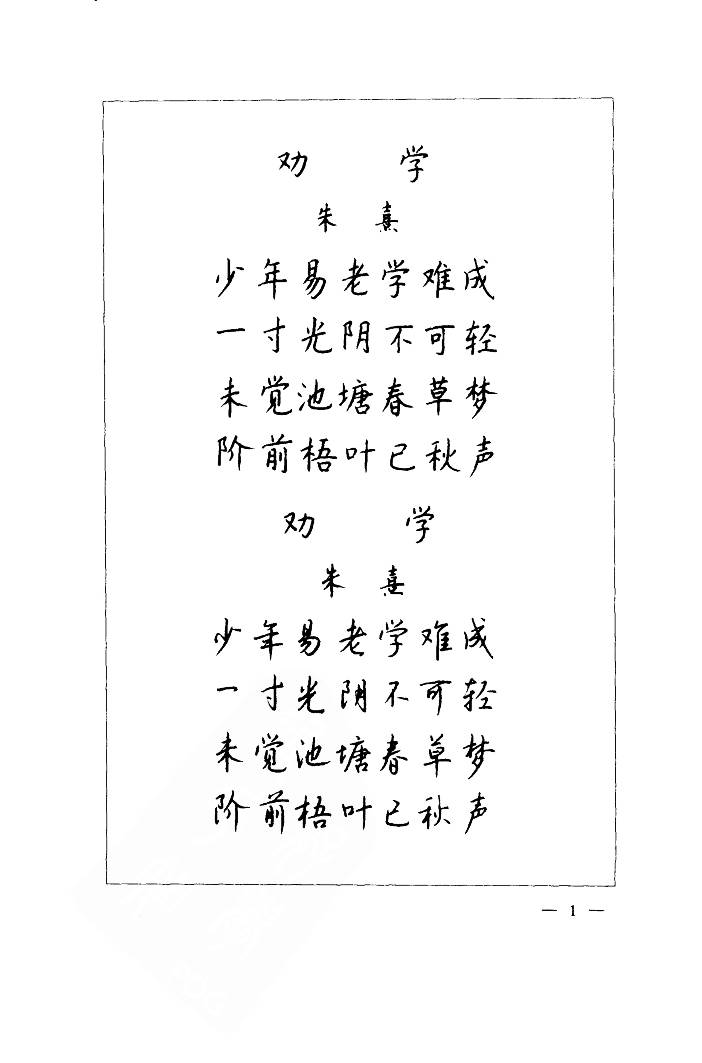 劝 学
朱 熹
少年易老学难成
一寸光阴不可轻
未觉池塘春草梦
阶前梧叶已秋声
劝 学
朱 熹
少年易老学难成
一寸光阴不可轻
未觉池塘春草梦
阶前梧叶已秋声
— 1 —